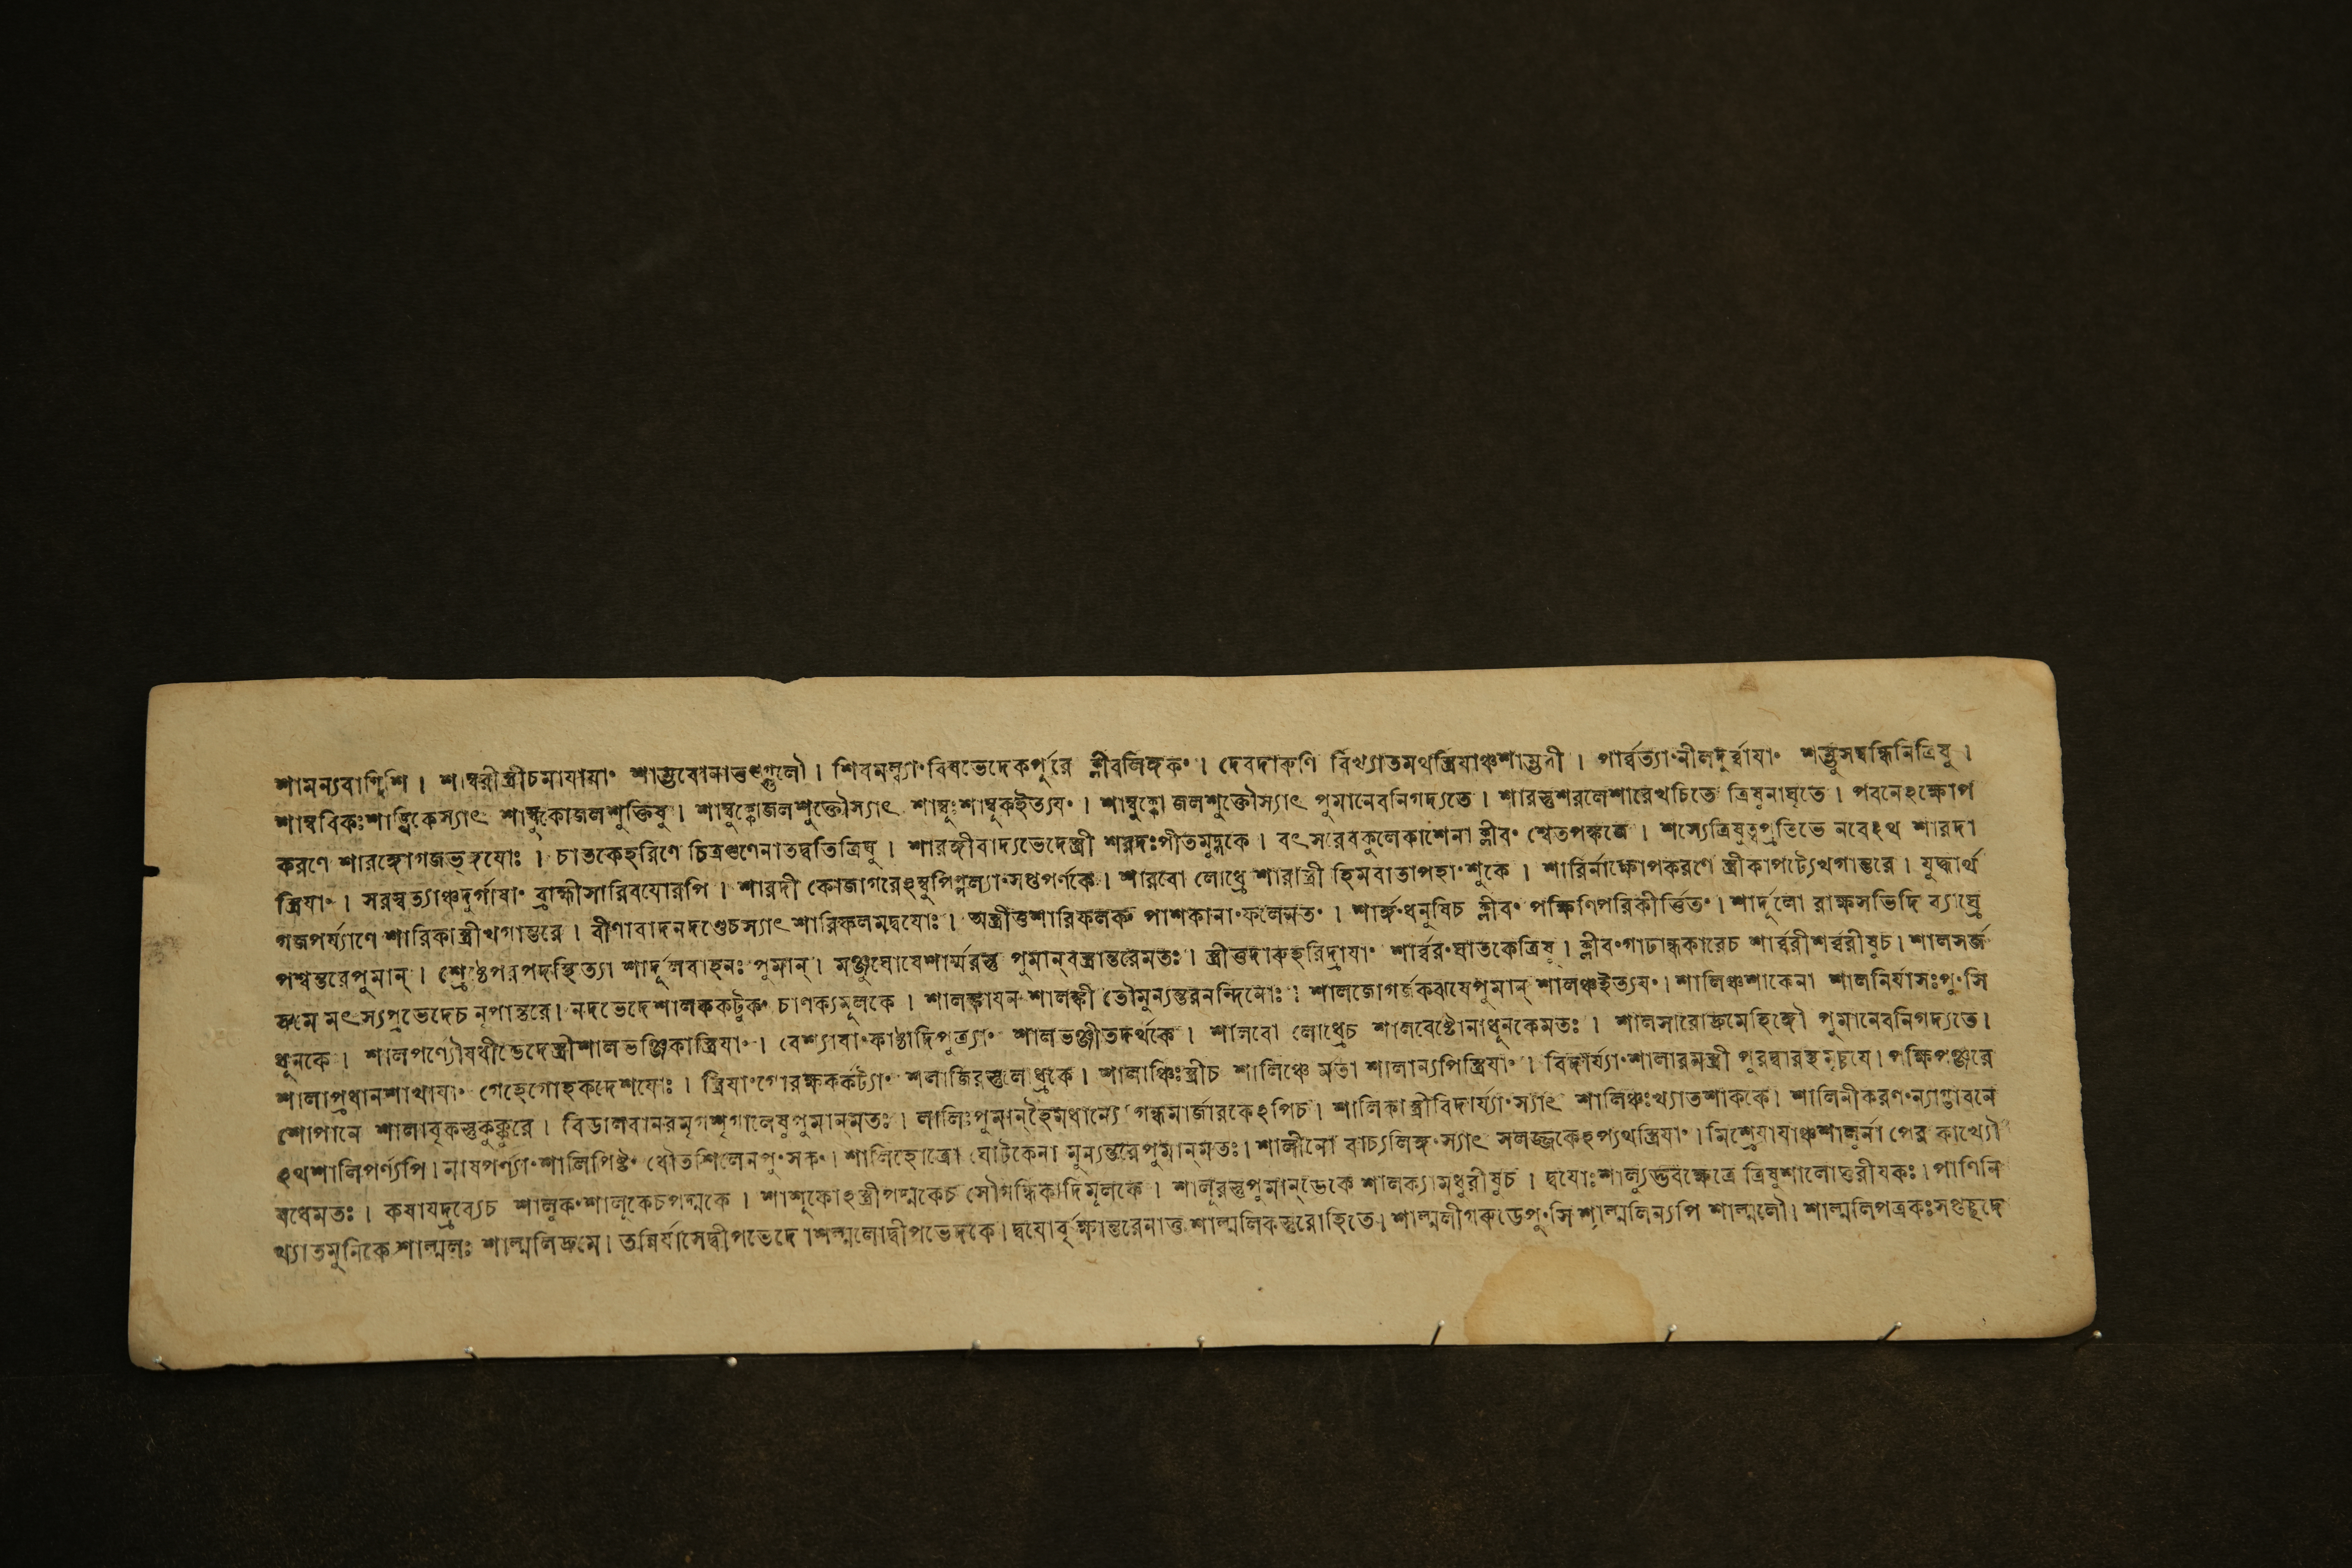 শামন্যবাণিশি । শাম্বরীস্ত্রীচমাযায়া॰ শাম্ভবোনাত্তুগ্গুলৌ । শিবমল্ল্যা॰বিষভেদেকর্পুরে ক্লীবলিঙ্গক॰ । দেবদারুণি বিখ্যাতমথস্ত্রিযাঞ্চশাম্ভবী । পার্ব্বত্যা॰নীলদুর্ব্বাযা॰ শম্ভুসম্বন্ধিনিত্রিষু ।
শাম্ববিকঃশাঙ্খিকেস্যাৎ শাম্বুকোজলশুক্তিষু । শাম্বুক্কোজলশুক্তৌস্যাৎ শাম্বুঃশাম্বুকইত্যয॰ । শাম্বুক্কো জলশুক্তৌস্যাৎ পুমানেবনিগদ্যতে । শারস্তুশরলেশারেখচিতে ত্রিষুনাঘৃতে । পবনেঽক্ষোপ
করণে শারঙ্গোগজভৃঙ্গযোঃ । চাতকেহরিণে চিত্রগুণেনাতদ্বতিত্রিষু । শারঙ্গীবাদ্যভেদেস্ত্রী শরদঃপীতমুদ্গকে । বৎসরেবকুলেকাশেনা ক্লীব॰ শ্বেতপঙ্কজে । শস্যেত্রিষুত্বপ্রতিভে নবেঽথ শারদা
স্ত্রিযা॰ । সরস্বত্যাঞ্চদুর্গাযা॰ ব্রাহ্মীসারিবযোরপি । শারদী কোজাগরেঽম্বুপিপ্পল্যা॰সপ্তপর্ণকে । শারবো লোধ্রে শারাত্রী হিমবাতাপহা॰শুকে । শারির্নাক্ষোপকরণে স্ত্রীকাপট্যেখগান্তরে । যুদ্ধার্থ
গজপর্য্যাণে শারিকাস্ত্রীখগান্তরে । বীণাবাদনদণ্ডেচস্যাৎ শারিফলমদ্বযোঃ । অস্ত্রীতুশারিফলক॰ পাশকানা॰ফলেমত॰ । শার্ঙ্গ॰ধনুষিচ ক্লীব॰ পক্ষিণিপরিকীর্ত্তিত॰ । শার্দূলো রাক্ষসভিদি ব্যাঘ্রে
পশ্বন্তরেপুমান্ । শ্রেষ্ঠেপরপদস্থিত্যা শার্দূলবাহনঃ পুমান্ । মঞ্জুঘোষেশার্ম্মরস্তু পুমান্‌বস্ত্রান্তরেমতঃ । স্ত্রীতুদারুহরিদ্রাযা॰ শার্ব্বর॰ঘাতকেত্রিষু । ক্লীব॰গাঢান্ধকারেচ শার্ব্বরীশর্ব্বরীষুচ । শালসর্জ
দ্রুমে মৎস্যপ্রভেদেচ নৃপান্তরে । নদভেদেশালককটুক॰ চাণক্যমূলকে । শালঙ্কাযন শালঙ্কী তৌমুন্যন্তরনন্দিনোঃ । শালজোগর্জকঝষেপুমান্ শালঞ্চইত্যয॰ । শালিঞ্চশাকেনা শালনির্যাসঃপু॰সি
ধূনকে । শালপর্ণ্যৌষধীভেদেস্ত্রীশালভঞ্জিকাস্ত্রিযা॰ । বেশ্যাযা॰কাষ্ঠাদিপুত্র্যা॰ শালভঞ্জীতদর্থকে । শালবো লোধ্রেচ শালবেষ্টোনাধূনকেমতঃ । শালসারোদ্রুমেহিঙ্গৌ পুমানেবনিগদ্যতে ।
শালাপ্রধানশাখাযা॰ গেহেগোহকদেশযোঃ । স্ত্রিযা॰গোরক্ষকর্কট্যা॰ শলাজিরস্তুলাধ্রকে । শালাঞ্চিঃস্ত্রীচ শালিঞ্চে মতা শালান্যপিস্ত্রিযা॰ । বিদার্য্যা॰শালারমস্ত্রী পুরদ্বারস্থমৃচযে । পক্ষিপঞ্জরে
শোপানে শালাবৃকস্তুকুক্কুরে । বিডালবানরমৃগশৃগালেষুপুমান্‌মতঃ । লালিঃপুমান্‌হৈমধান্যে গন্ধমার্জারকেঽপিচ । শালিকাস্ত্রীবিদার্য্যা॰স্যাৎ শালিঞ্চঃখ্যাতশাককে । শালিনীকরণ॰ন্যাগ্ভাবনে
ঽথশালিপর্ণ্যপি । মাষপর্ণ্যা॰শালিপিষ্ট॰ ধৌতশিলেনপু॰সক॰ । শালিহোত্রো ঘোটকেনা মুন্যন্তরেপুমান্‌মতঃ । শালীনো বাচ্যলিঙ্গ॰স্যাৎ সলজ্জকেঽপ্যথস্ত্রিযা॰ । মিশ্রেযাযাঞ্চশালুর্না পের কাখ্যৌ
ষধেমতঃ । কষাযদ্রব্যেচ শালুক॰শালুকেচপদ্মকে । শাশুকোঽস্ত্রীপদ্মকেচ সৌগন্ধিকাদিমূলকে । শালূরস্তুপুমান্‌ভেকে শালক্যামধুরীষুচ । দ্বযোঃশাল্যুদ্ভবক্ষেত্রে ত্রিষুশালোত্তরীযকঃ । পাণিনি
খ্যাতমুনিকে শাল্মলঃ শাল্মলিদ্রুমে । তন্নির্যাসেদ্বীপভেদে শাল্মলোদ্বীপভেদকে । দ্বযোর্বৃক্ষান্তরেনাতু শাল্মলিকস্তুরোহিতে । শাল্মলীগরুডেপু॰সি শাল্মলিন্যপি শাল্মলৌ । শাল্মলিপত্রকঃসপ্তচ্ছদে